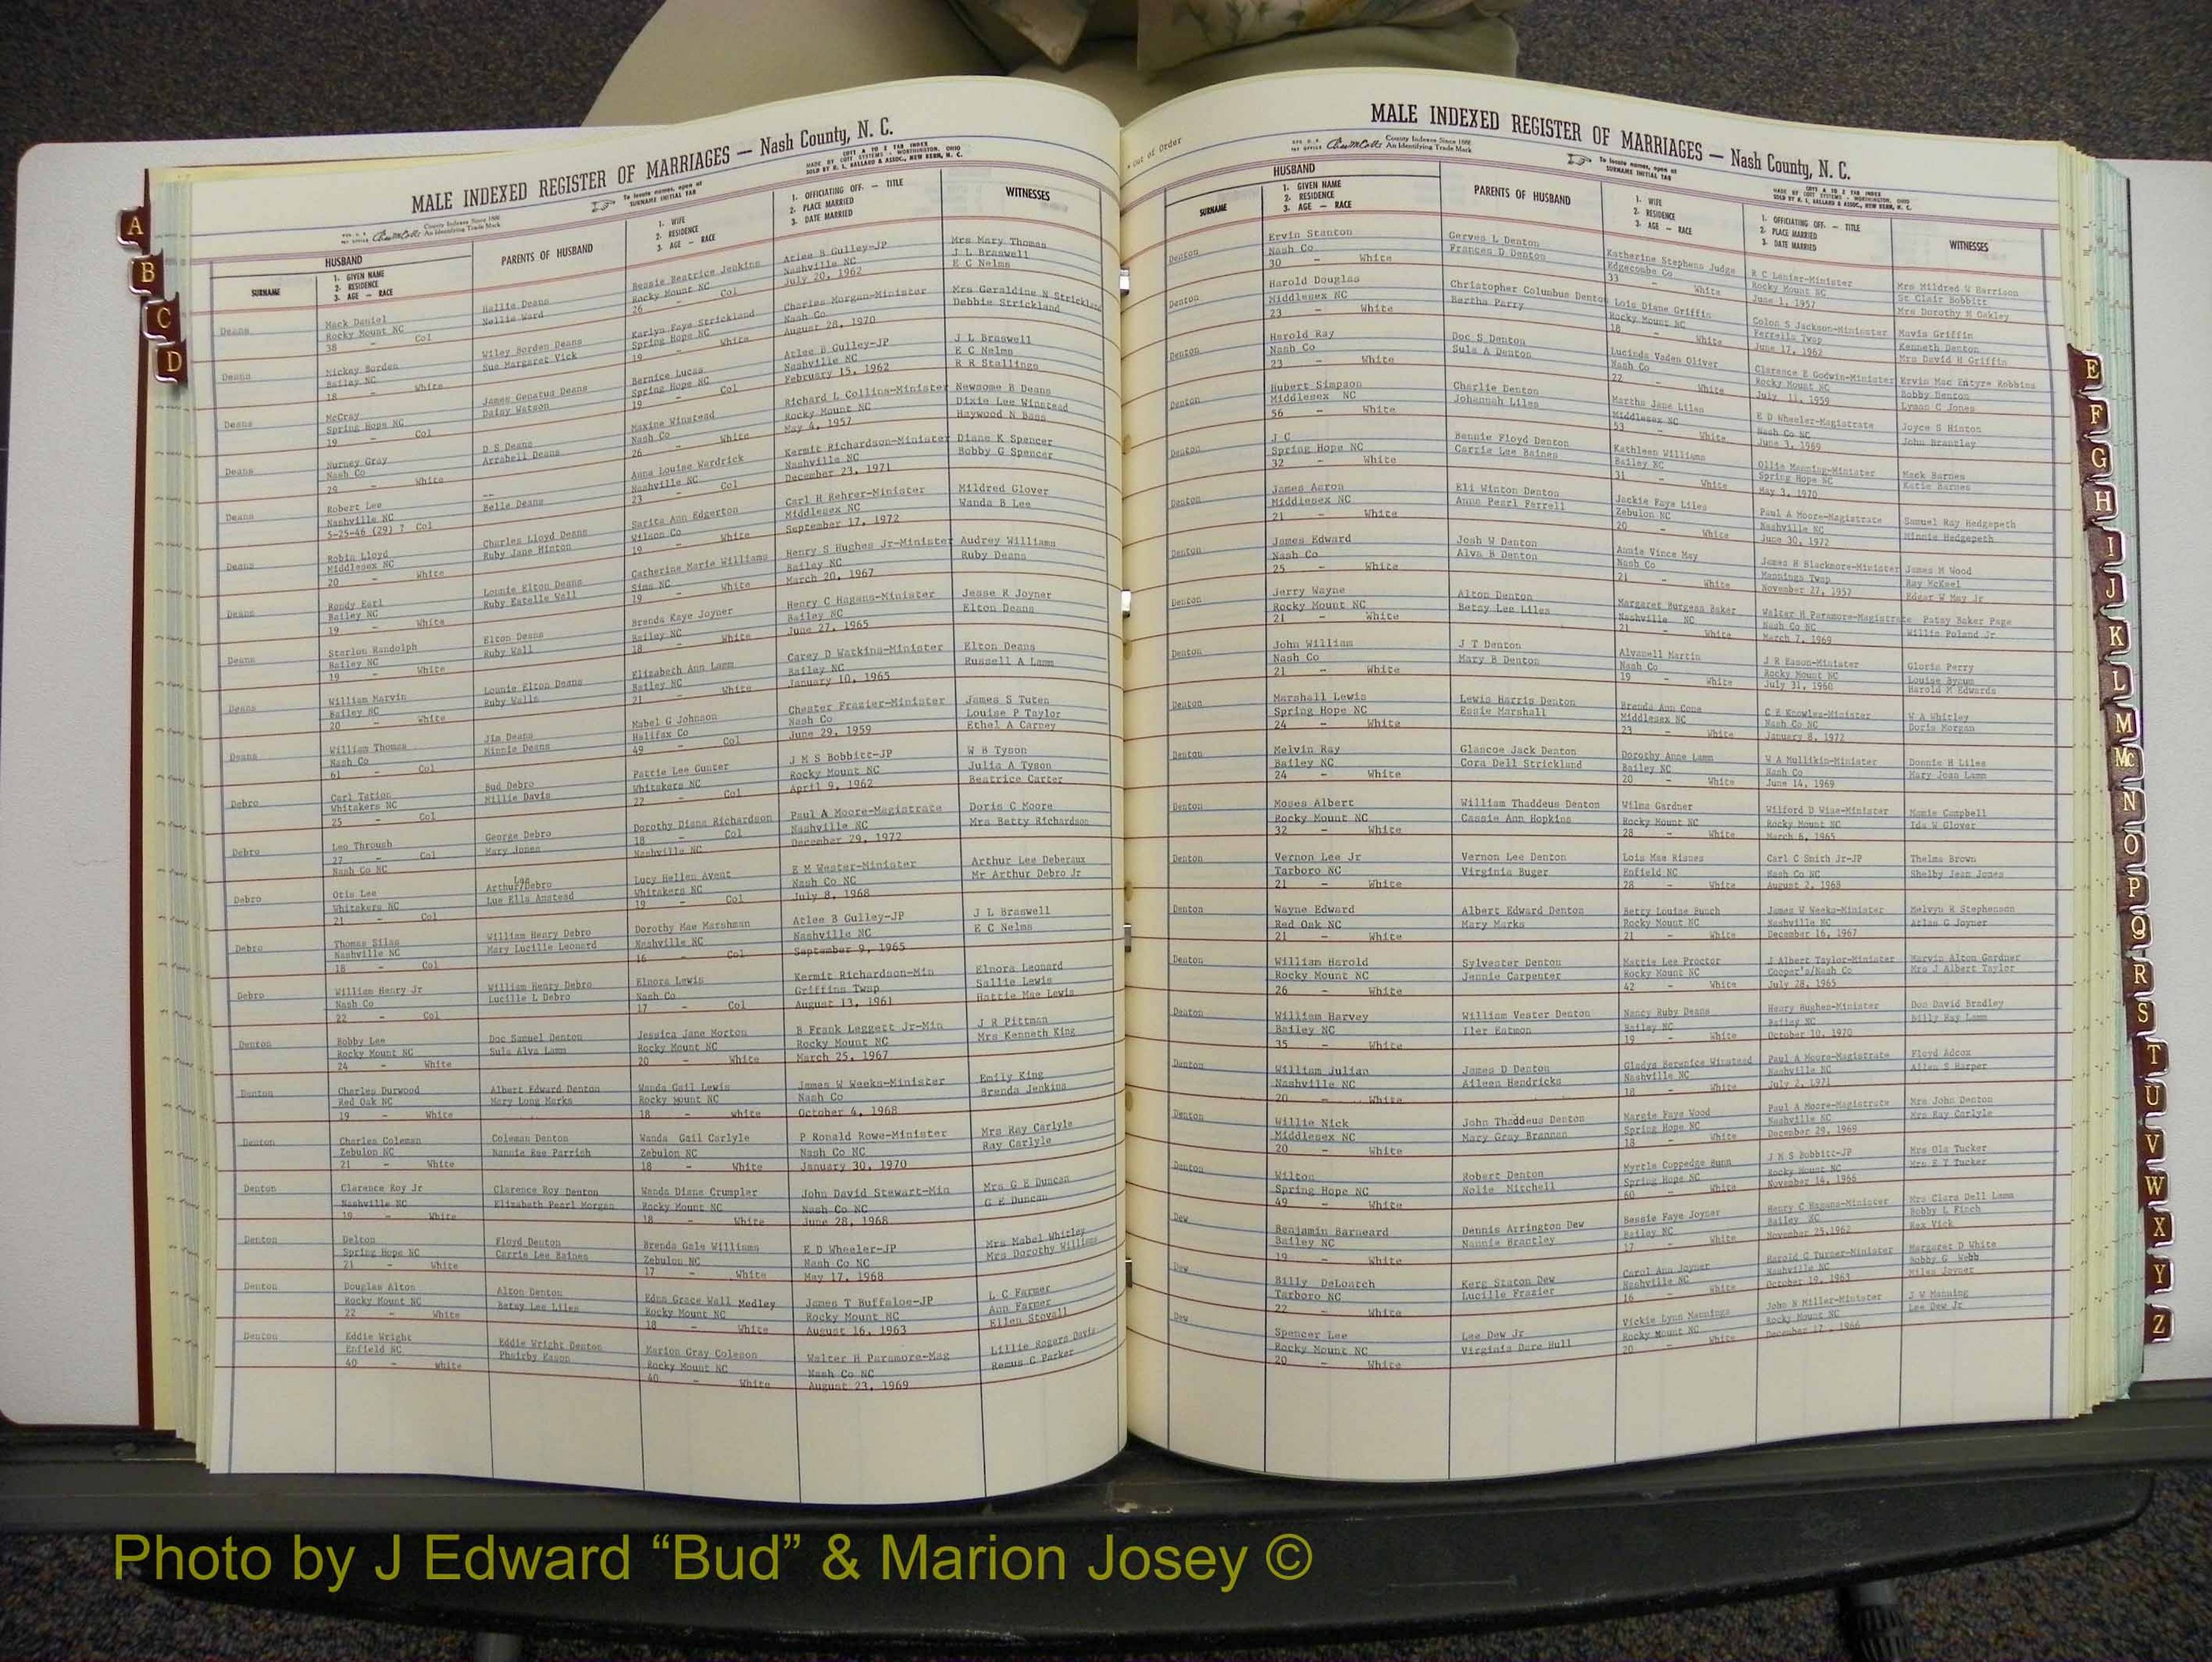 MALE INDEXED REGISTER OF MARRIAGES — Nash County, N. C.
County Indexes Since 1888
An Identifying Trade Mark
To locate names, open at
SURNAME INITIAL TAB
COTT A TO Z TAB INDEX
MADE BY COTT SYSTEMS - WORTHINGTON, OHIO
SOLD BY R. L. BALLARD & ASSOC., NEW BERN, N. C.
HUSBAND
SURNAME
1. GIVEN NAME
2. RESIDENCE
3. AGE — RACE
PARENTS OF HUSBAND
1. WIFE
2. RESIDENCE
3. AGE — RACE
1. OFFICIATING OFF. — TITLE
2. PLACE MARRIED
3. DATE MARRIED
WITNESSES
Deans Mack Daniel Hallie Deans Bessie Beatrice Jenkins Atlee B Gulley-JP Mrs Mary Thomas
Rocky Mount NC Nellie Ward Rocky Mount NC Nashville NC J L Braswell
38 - Col 26 - Col July 20, 1962 E C Nelms
Deans Mickey Borden Wiley Borden Deans Karlyn Faye Strickland Charles Morgan-Minister Mrs Geraldine N Strickland
Bailey NC Sue Margaret Vick Spring Hope NC Nash Co Debbie Strickland
18 - White 19 - White August 28, 1970
Deans McCray James Genatus Deans Bernice Lucas Atlee B Gulley-JP J L Braswell
Spring Hope NC Daisy Watson Spring Hope NC Nashville NC E C Nelms
19 - Col 19 - Col February 15, 1962 R R Stallings
Deans Nurney Gray D S Deans Maxine Winstead Richard L Collins-Minister Newsome B Deans
Nash Co Arrabell Deans Nash Co Rocky Mount NC Dixie Lee Winstead
29 - White 26 - White May 4, 1957 Haywood N Bass
Deans Robert Lee -- Anna Louise Wardrick Kermit Richardson-Minister Diane K Spencer
Nashville NC Belle Deans Nashville NC Nashville NC Bobby G Spencer
5-25-46 (29) ? Col 23 - Col December 23, 1971
Deans Robin Lloyd Charles Lloyd Deans Sarita Ann Edgerton Carl H Rehrer-Minister Mildred Glover
Middlesex NC Ruby Jane Hinton Wilson Co Middlesex NC Wanda B Lee
20 - White 19 - White September 17, 1972
Deans Rondy Earl Lonnie Elton Deans Catherine Marie Williams Henry S Hughes Jr-Minister Audrey Williams
Bailey NC Ruby Estelle Wall Sims NC Bailey NC Ruby Deans
19 - White 19 - White March 20, 1967
Deans Starlon Randolph Elton Deans Brenda Kaye Joyner Henry C Hagans-Minister Jesse R Joyner
Bailey NC Ruby Wall Bailey NC Bailey NC Elton Deans
19 - White 18 - White June 27, 1965
Deans William Marvin Lounie Elton Deans Elizabeth Ann Lamm Carey D Watkins-Minister Elton Deans
Bailey NC Ruby Walls Bailey NC Bailey NC Russell A Lamm
20 - White 21 - White January 10, 1965
Deans William Thomas Jim Deans Mabel G Johnson Chester Frazier-Minister James S Tuten
Nash Co Minnie Deans Halifax Co Nash Co Louise P Taylor
61 - Col 49 - Col June 29, 1959 Ethel A Carney
Debro Carl Tation Bud Debro Pattie Lee Gunter J M S Bobbitt-JP W B Tyson
Whitakers NC Millie Davis Whitakers NC Rocky Mount NC Julia A Tyson
25 - Col 22 - Col April 9, 1962 Beatrice Carter
Debro Leo Through George Debro Dorothy Diana Richardson Paul A Moore-Magistrate Doris C Moore
27 - Col Mary Jones 18 - Col Nashville NC Mrs Betty Richardson
Nash Co NC Nashville NC December 29, 1972
Debro Otis Lee Arthur/Lee Debro Lucy Hellen Avent E M Wester-Minister Arthur Lee Deberaux
Whitakers NC Lue Ella Anstead Whitakers NC Nash Co NC Mr Arthur Debro Jr
21 - Col 19 - Col July 8, 1968
Debro Thomas Silas William Henry Debro Dorothy Mae Marshman Atlee B Gulley-JP J L Braswell
Nashville NC Mary Lucille Leonard Nashville NC Nashville NC E C Nelms
18 - Col 16 - Col September 9, 1965
Debro William Henry Jr William Henry Debro Elnora Lewis Kermit Richardson-Min Elnora Leonard
Nash Co Lucille L Debro Nash Co Griffins Twsp Sallie Lewis
22 - Col 17 - Col August 13, 1961 Hattie Mae Lewis
Denton Bobby Lee Doc Samuel Denton Jessica Jane Morton B Frank Leggett Jr-Min J R Pittman
Rocky Mount NC Sula Alva Lamm Rocky Mount NC Rocky Mount NC Mrs Kenneth King
24 - White 20 - White March 25, 1967
Denton Charles Durwood Albert Edward Denton Wanda Gail Lewis James W Weeks-Minister Emily King
Red Oak NC Mary Long Marks Rocky Mount NC Nash Co Brenda Jenkins
19 - White 18 - white October 4, 1968
Denton Charles Coleman Coleman Denton Wanda Gail Carlyle P Ronald Rowe-Minister Mrs Ray Carlyle
Zebulon NC Nannie Ree Parrish Zebulon NC Nash Co NC Ray Carlyle
21 - White 18 - White January 30, 1970
Denton Clarence Roy Jr Clarence Roy Denton Wanda Diane Crumpler John David Stewart-Min Mrs G E Duncan
Nashville NC Elizabeth Pearl Morgan Rocky Mount NC Nash Co NC G E Duncan
19 - White 18 - White June 28, 1968
Denton Delton Floyd Denton Brenda Gale Williams E D Wheeler-JP Mrs Mabel Whitley
Spring Hope NC Carrie Lee Baines Zebulon NC Nash Co NC Mrs Dorothy Williams
21 - White 17 - White May 17, 1968
Denton Douglas Alton Alton Denton Edna Grace Wall Medley James T Buffaloe-JP L C Farmer
Rocky Mount NC Betsy Lee Liles Rocky Mount NC Rocky Mount NC Ann Farmer
22 - White 18 - White August 16, 1963 Ellen Stovall
Denton Eddie Wright Eddie Wright Denton Marion Gray Coleson Walter H Paramore-Mag Lillie Rogers Davis
Enfield NC Phairby Eason Rocky Mount NC Nash Co NC Remus C Parker
40 - white 40 - White August 23, 1969
* Out of Order
MALE INDEXED REGISTER OF MARRIAGES — Nash County, N. C.
County Indexes Since 1888
An Identifying Trade Mark
To locate names, open at
SURNAME INITIAL TAB
COTT A TO Z TAB INDEX
MADE BY COTT SYSTEMS - WORTHINGTON, OHIO
SOLD BY R. L. BALLARD & ASSOC., NEW BERN, N. C.
HUSBAND
SURNAME
1. GIVEN NAME
2. RESIDENCE
3. AGE — RACE
PARENTS OF HUSBAND
1. WIFE
2. RESIDENCE
3. AGE — RACE
1. OFFICIATING OFF. — TITLE
2. PLACE MARRIED
3. DATE MARRIED
WITNESSES
Denton Ervin Stanton Garves L Denton Katherine Stephens Judge R C Lanier-Minister Mrs Mildred W Harrison
Nash Co Frances D Denton Edgecombe Co Rocky Mount NC St Clair Bobbitt
30 - White 33 - White June 1, 1957 Mrs Dorothy M Oakley
Denton Harold Douglas Christopher Columbus Denton Lois Diane Griffin Colon S Jackson-Minister Mavis Griffin
Middlesex NC Bertha Parry Rocky Mount NC Ferrells Twsp Kenneth Denton
23 - White 18 - White June 17, 1962 Mrs David H Griffin
Denton Harold Ray Doc S Denton Lucinda Vaden Oliver Clarence E Godwin-Minister Ervin Mac Entyre Robbins
Nash Co Sula A Denton Nash Co Rocky Mount NC Bobby Denton
23 - White 22 - White July 11, 1959 Lyman C Jones
Denton Hubert Simpson Charlie Denton Martha Jane Liles E D Wheeler-Magistrate Joyce S Hinton
Middlesex NC Johannah Liles Middlesex NC Nash Co NC John Brantley
56 - White 53 - White June 3, 1969
Denton J C Bennie Floyd Denton Kathleen Williams Ollis Manning-Minister Mack Barnes
Spring Hope NC Carrie Lee Baines Bailey NC Spring Hope NC Katie Barnes
32 - White 31 - White May 3, 1970
Denton James Aaron Eli Winton Denton Jackie Faye Liles Paul A Moore-Magistrate Samuel Ray Hedgepeth
Middlesex NC Anna Pearl Ferrell Zebulon NC Nashville NC Minnie Hedgepeth
21 - White 20 - White June 30, 1972
Denton James Edward Josh W Denton Annie Vince May James H Blackmore-Minister James M Wood
Nash Co Alva B Denton Nash Co Mannings Twsp Ray McKeel
25 - White 21 - White November 27, 1957 Edgar W May Jr
Denton Jerry Wayne Alton Denton Margaret Burgess Baker Walter H Paramore-Magistrate Patsy Baker Page
Rocky Mount NC Betsy Lee Liles Nashville NC Nash Co NC Willis Poland Jr
21 - White 21 - White March 7, 1969
Denton John William J T Denton Alvanell Martin J R Eason-Minister Gloria Perry
Nash Co Mary B Denton Nash Co Rocky Mount NC Louise Bynum
21 - White 19 - White July 31, 1960 Harold M Edwards
Denton Marshall Lewis Lewis Harris Denton Brenda Ann Cone C E Knowles-Minister W A Whitley
Spring Hope NC Essie Marshall Middlesex NC Nash Co NC Doris Morgan
24 - White 23 - White January 8, 1972
Denton Melvin Ray Glascoe Jack Denton Dorothy Anne Lamm W A Mullikin-Minister Donnie H Liles
Bailey NC Cora Dell Strickland Bailey NC Nash Co Mary Joan Lamm
24 - White 20 - White June 14, 1969
Denton Moses Albert William Thaddeus Denton Wilma Gardner Wilford D Wise-Minister Mamie Campbell
Rocky Mount NC Cassie Ann Hopkins Rocky Mount NC Rocky Mount NC Ida W Glover
32 - White 28 - White March 6, 1965
Denton Vernon Lee Jr Vernon Lee Denton Lois Mae Risnes Carl C Smith Jr-JP Thelma Brown
Tarboro NC Virginia Buger Enfield NC Nash Co NC Shelby Jean Jones
21 - White 28 - White August 2, 1968
Denton Wayne Edward Albert Edward Denton Betty Louise Bunch James W Weeks-Minister Melvyn R Stephenson
Red Oak NC Mary Marks Rocky Mount NC Nashville NC Atlas G Joyner
21 - White 21 - White December 16, 1967
Denton William Harold Sylvester Denton Mattie Lee Proctor J Albert Taylor-Minister Marvin Alton Gardner
Rocky Mount NC Jennie Carpenter Rocky Mount NC Cooper's/Nash Co Mrs J Albert Taylor
26 - White 42 - White July 28, 1965
Denton William Harvey William Vester Denton Nancy Ruby Deans Henry Hughes-Minister Don David Bradley
Bailey NC Iler Eatmon Bailey NC Bailey NC Billy Ray Lamm
35 - White 19 - White October 10, 1970
Denton William Julian James D Denton Gladys Berenice Winstead Paul A Moore-Magistrate Floyd Adcox
Nashville NC Aileen Hendricks Nashville NC Nashville NC Allen S Harper
20 - White 18 - White July 2, 1971
Denton Willie Nick John Thaddeus Denton Margie Faye Wood Paul A Moore-Magistrate Mrs John Denton
Middlesex NC Mary Gray Brannan Spring Hope NC Nashville NC Mrs Ray Carlyle
20 - White 18 - White December 29, 1969
Denton Wilton Robert Denton Myrtle Coppedge Bunn J M S Bobbitt-JP Mrs Ola Tucker
Spring Hope NC Nolie Mitchell Spring Hope NC Rocky Mount NC Mrs E T Tucker
49 - White 60 - White November 14, 1966
Dew Benjamin Barneard Dennis Arrington Dew Bessie Faye Joyner Henry C Hagans-Minister Mrs Clara Dell Lamm
Bailey NC Nannie Brantley Bailey NC Bailey NC Bobby L Finch
19 - White 17 - White November 25,1962 Rex Vick
Dew Billy DeLoatch Kerg Staton Dew Carol Ann Joyner Harold C Turner-Minister Margaret D White
Tarboro NC Lucille Frazier Nashville NC Nashville NC Bobby G Webb
22 - White 16 - White October 19, 1963 Miles Joyner
Dew Spencer Lee Lee Dew Jr Vickie Lynn Mannings John N Miller-Minister J W Manning
Rocky Mount NC Virginia Dare Hull Rocky Mount NC Rocky Mount NC Lee Dew Jr
20 - White 20 - White December 17, 1966
A
B
C
D
E
F
G
H
I
J
K
L
M
Mc
N
O
P
Q
R
S
T
U
V
W
X
Y
Z
Photo by J Edward “Bud” & Marion Josey ©